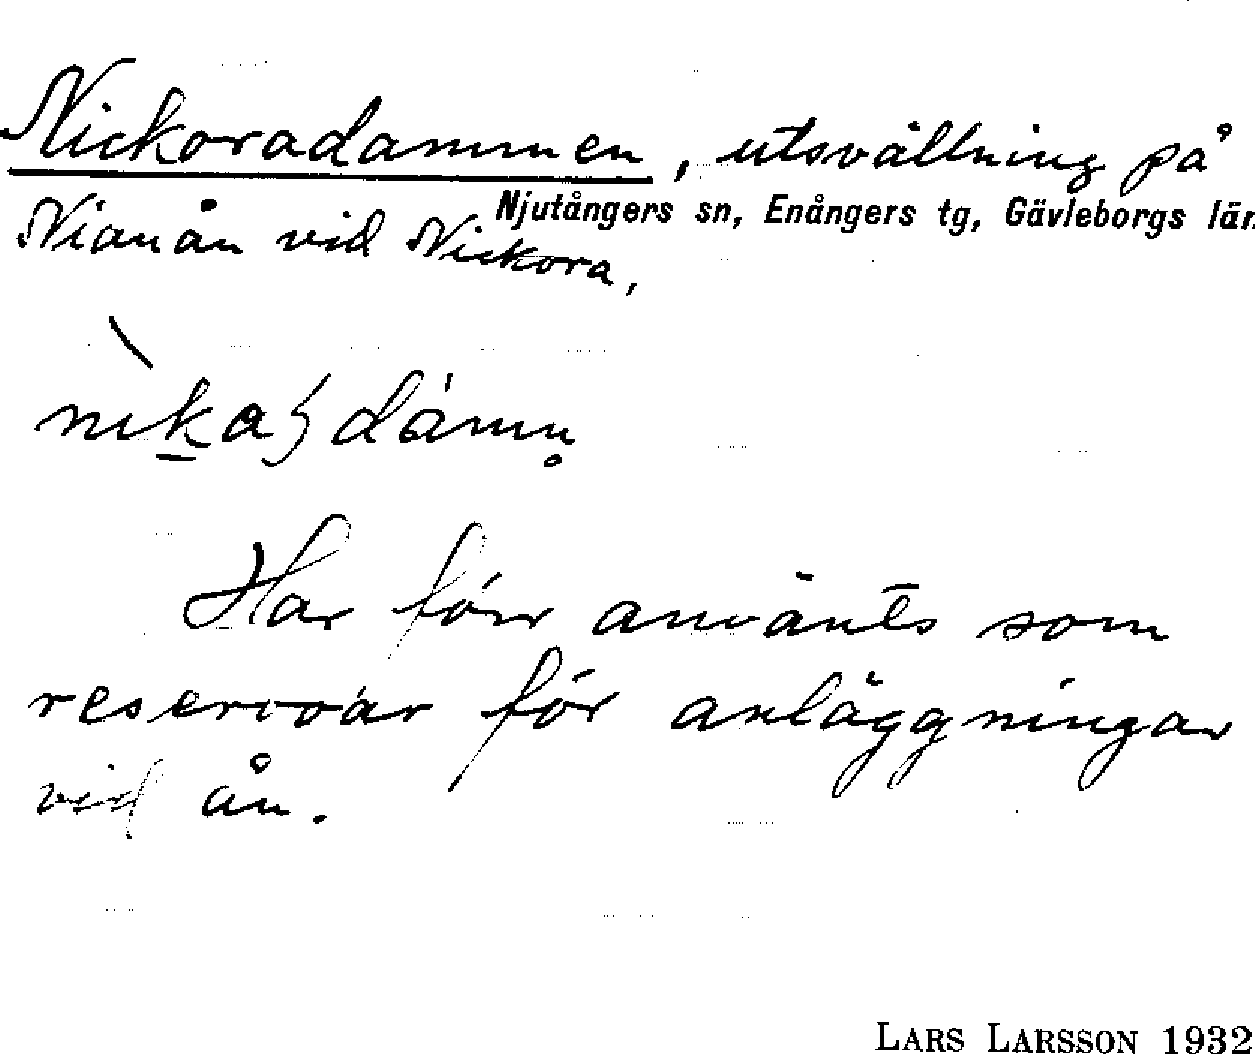 Nickoradammen, utsvällning på
Njutångers sn, Enångers tg, Gävleborgs län
Nianån vid Nickora,
Har förr använts som
reservoar för anläggningar
vid ån.
LARS LARSSON 1932